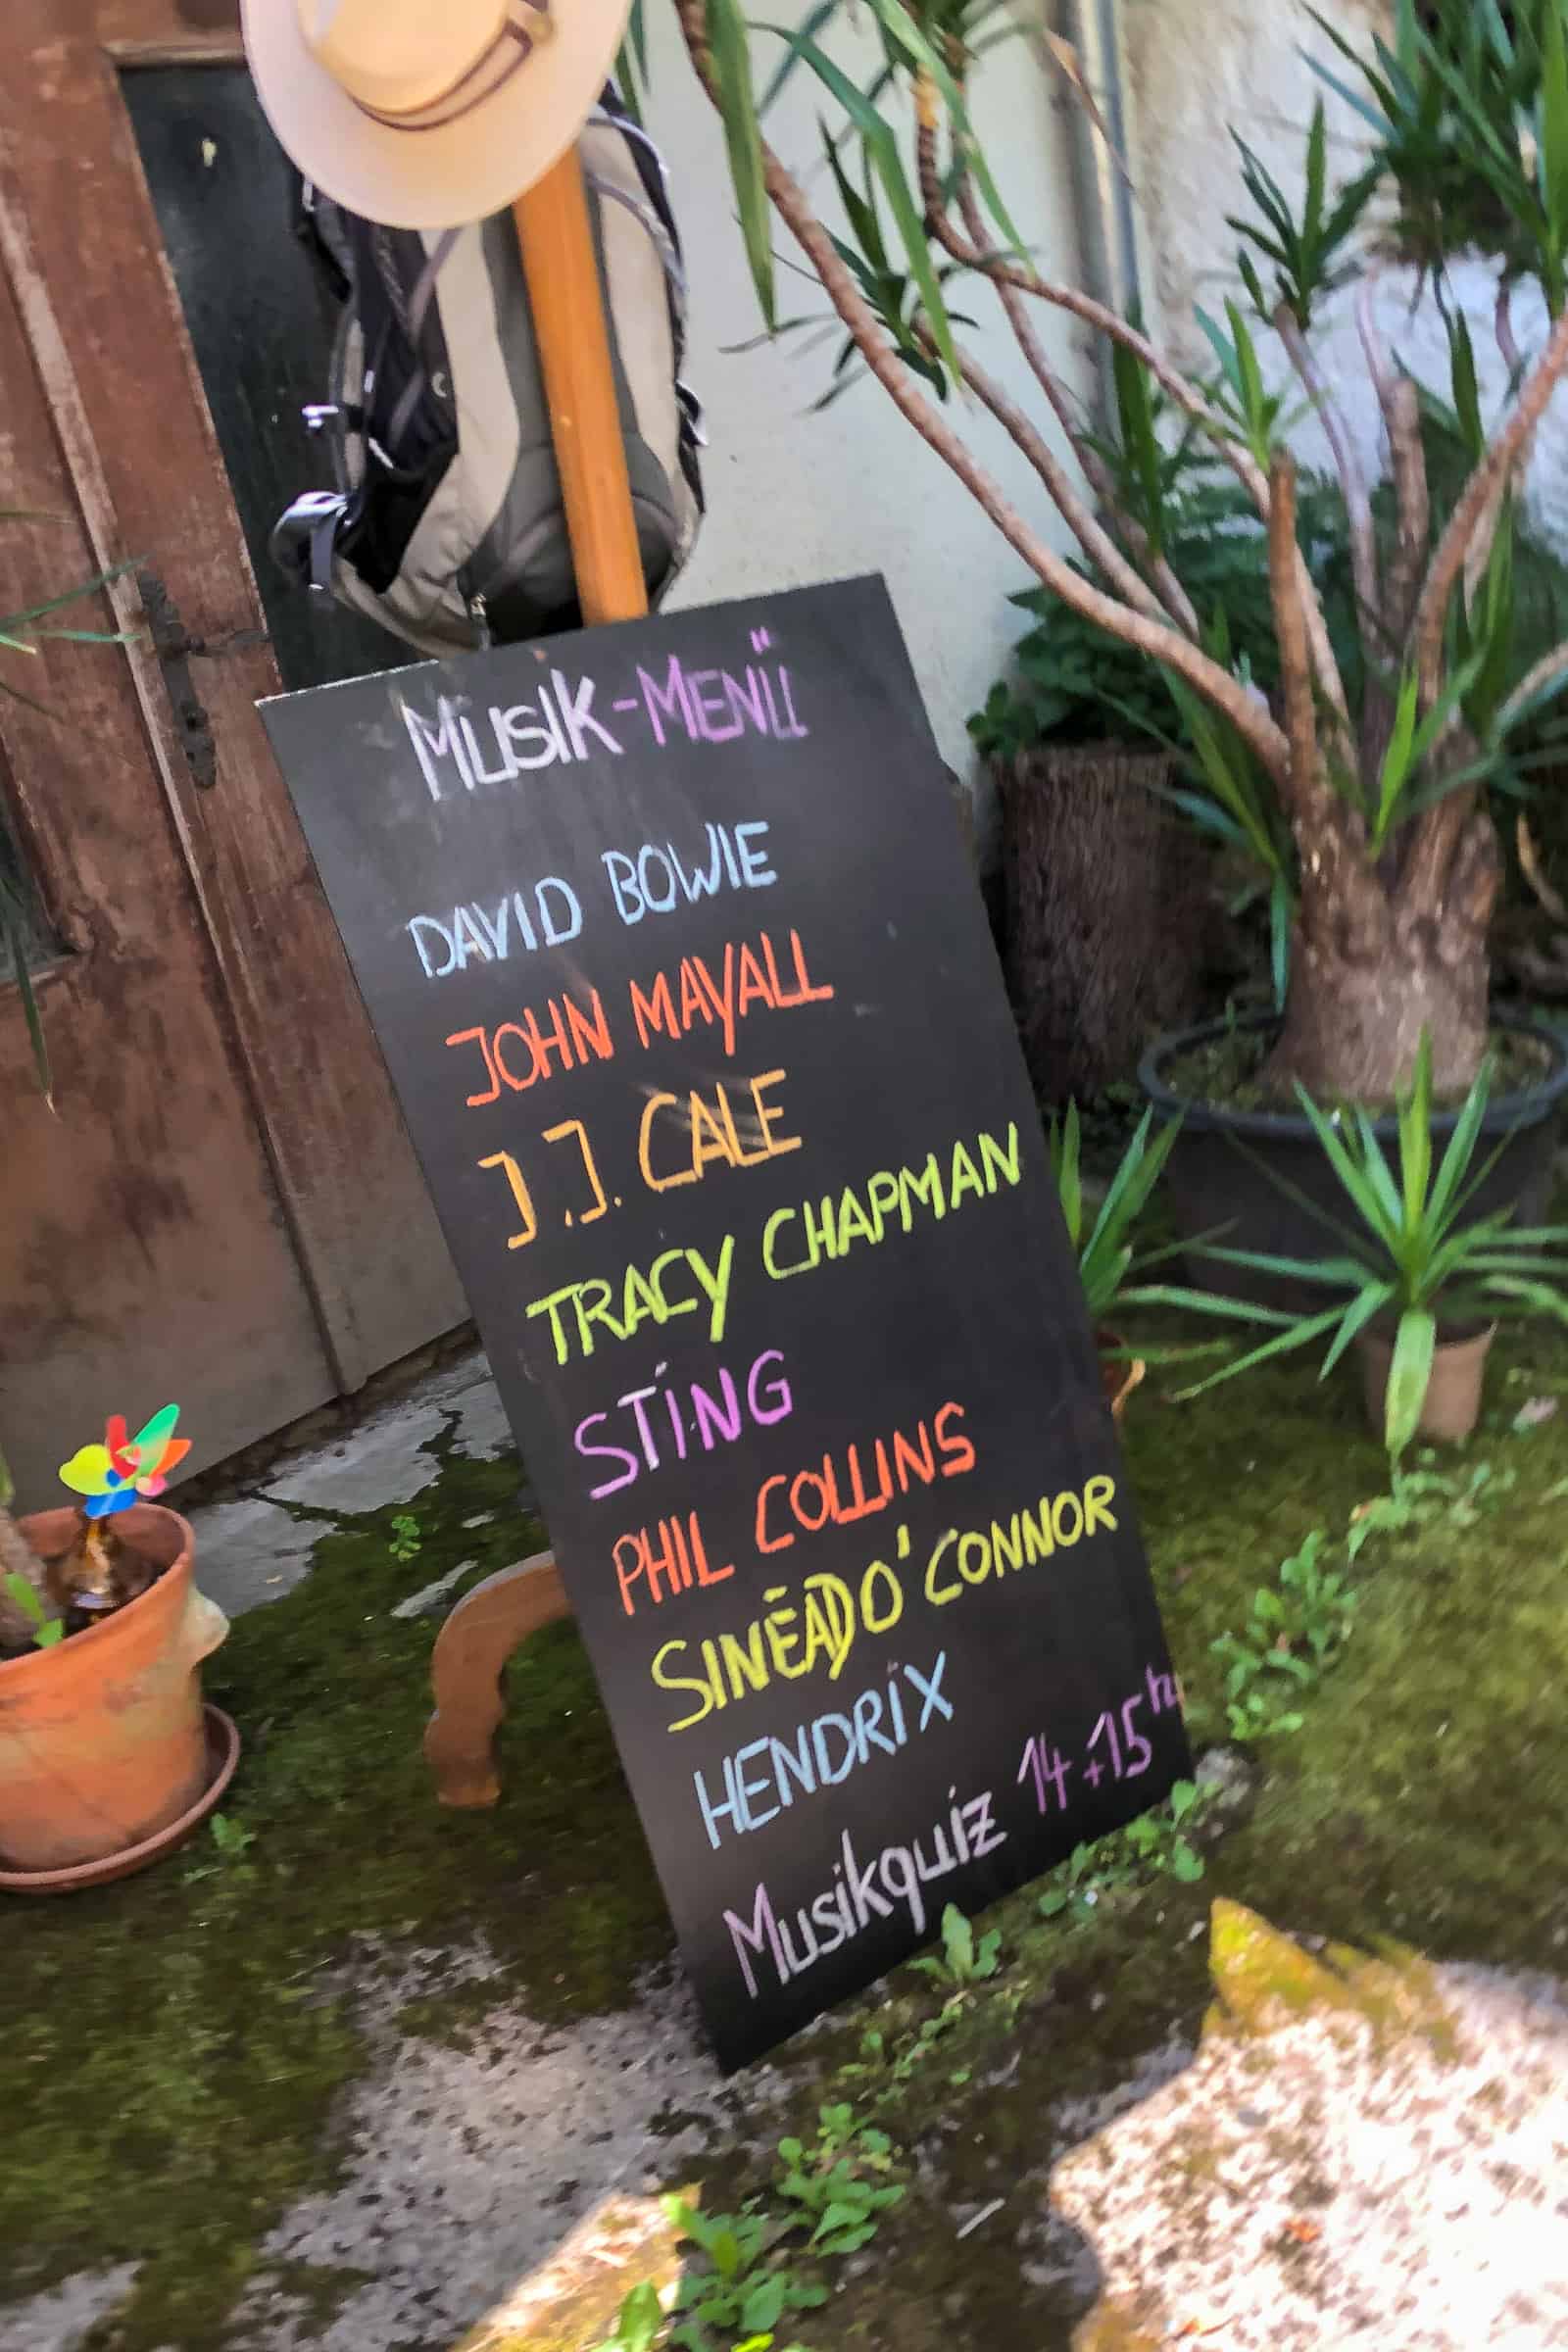 MUSIK-MENÜ
DAVID BOWIE
JOHN MAYALL
J.J. CALE
TRACY CHAPMAN
STING
PHIL COLLINS
SINÉAD O'CONNOR
HENDRIX
Musikquiz 14+15h